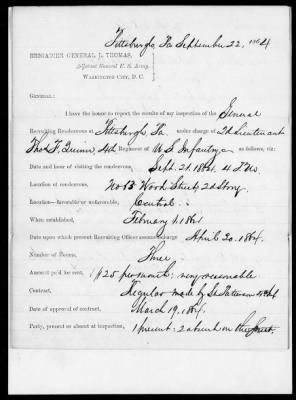 Pittsburgh, Pa September 22, 1864
BRIGADIER GENERAL L. THOMAS,
Adjutant General U. S. Army,
WASHINGTON CITY, D. C.
GENERAL:
I have the honor to report the results of my inspection of the General
Recruiting Rendezvous at Pittsburgh, Pa. under charge of 2d Lieutenant
Thos F. Quinn, 4th Regiment of U S Infantry, as follows, viz:
Date and hour of visiting the rendezvous, Sept. 21. 1864. 4 P.M.
Location of rendezvous, No 13 Wood Street, 2d Story.
Location—favorable or unfavorable, Central.
When established, February 1. 1864
Date upon which present Recruiting Officer assumed charge, April 20. 1864.
Number of Rooms, Three
Amount paid for rent, $25 per month: very reasonable
Contract, Regular made by Lt 4th
Date of approval of contract, March 19. 1864.
Party, present or absent at inspection, 1 present: 2 absent on the